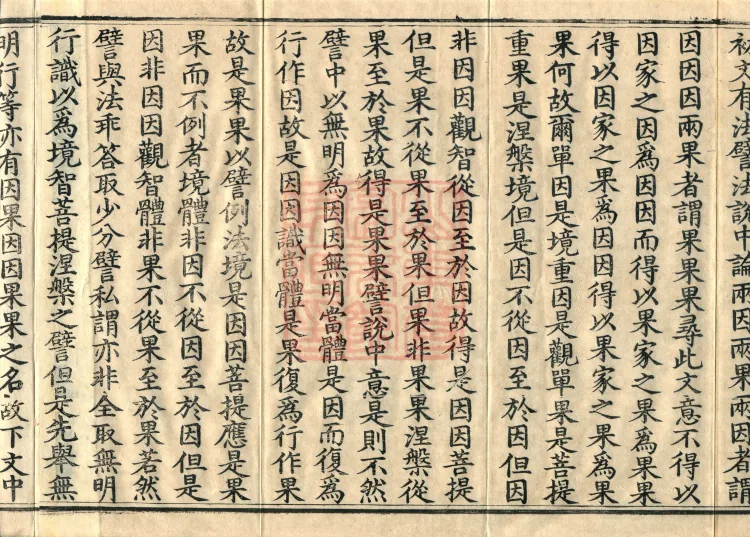 初文有法譬法說中論兩因兩果兩因者謂
因因因兩果者謂果果果尋此文意不得以
因家之因為因因而得以果家之果為果果
得以因家之果為因因得以果家之果為果
果何故爾單因是境重因是觀單果是菩提
重果是涅槃境但是因不從因至於因但因
非因因觀智從因至於因故得是因因菩提
但是果不從果至於果但果非果果涅槃從
果至於果故得是果果譬說中意是則不然
譬中以無明為因因無明當體是因而復為
行作因故是因因識當體是果復為行作果
故是果果以譬例法境是因因菩提應是果
果而不例者境體非因不從因至於因但是
因非因因觀智體非果不從果至於果若然
譬與法乖答取少分譬私謂亦非全取無明
行識以為境智菩提涅槃之譬但是先舉無
明行等亦有因果因因果果之名故下文中